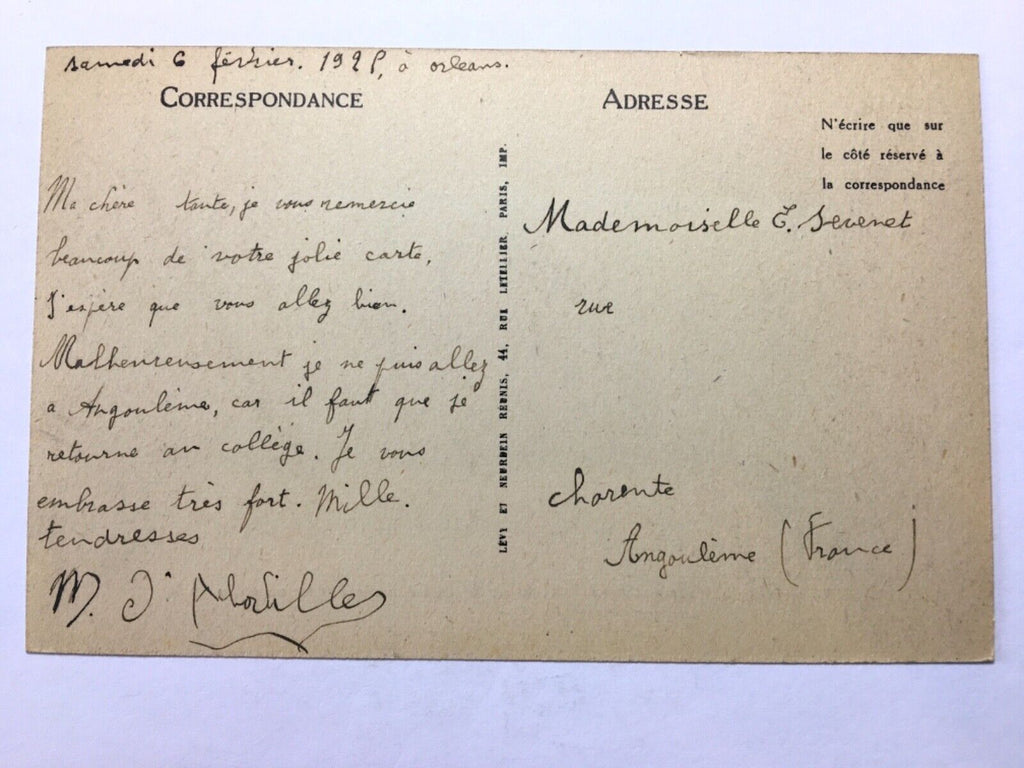 samedi 6 février. 192 , à orleans.
CORRESPONDANCE
Ma chère tante, je vous remercie
beaucoup de votre jolie carte,
J'espère que vous allez bien.
Malheureusement je ne puis allez
a Angoulème, car il faut que je
retourne au collège. Je vous
embrasse très fort. Mille.
tendresses
M. d'
LÉVY ET NEURDEIN RÉUNIS, 44, RUE LETELLIER, PARIS, IMP.
ADRESSE
N'écrire que sur
le côté réservé à
la correspondance
Mademoiselle E. Sevenet
rue
charente
Angoulème (France)